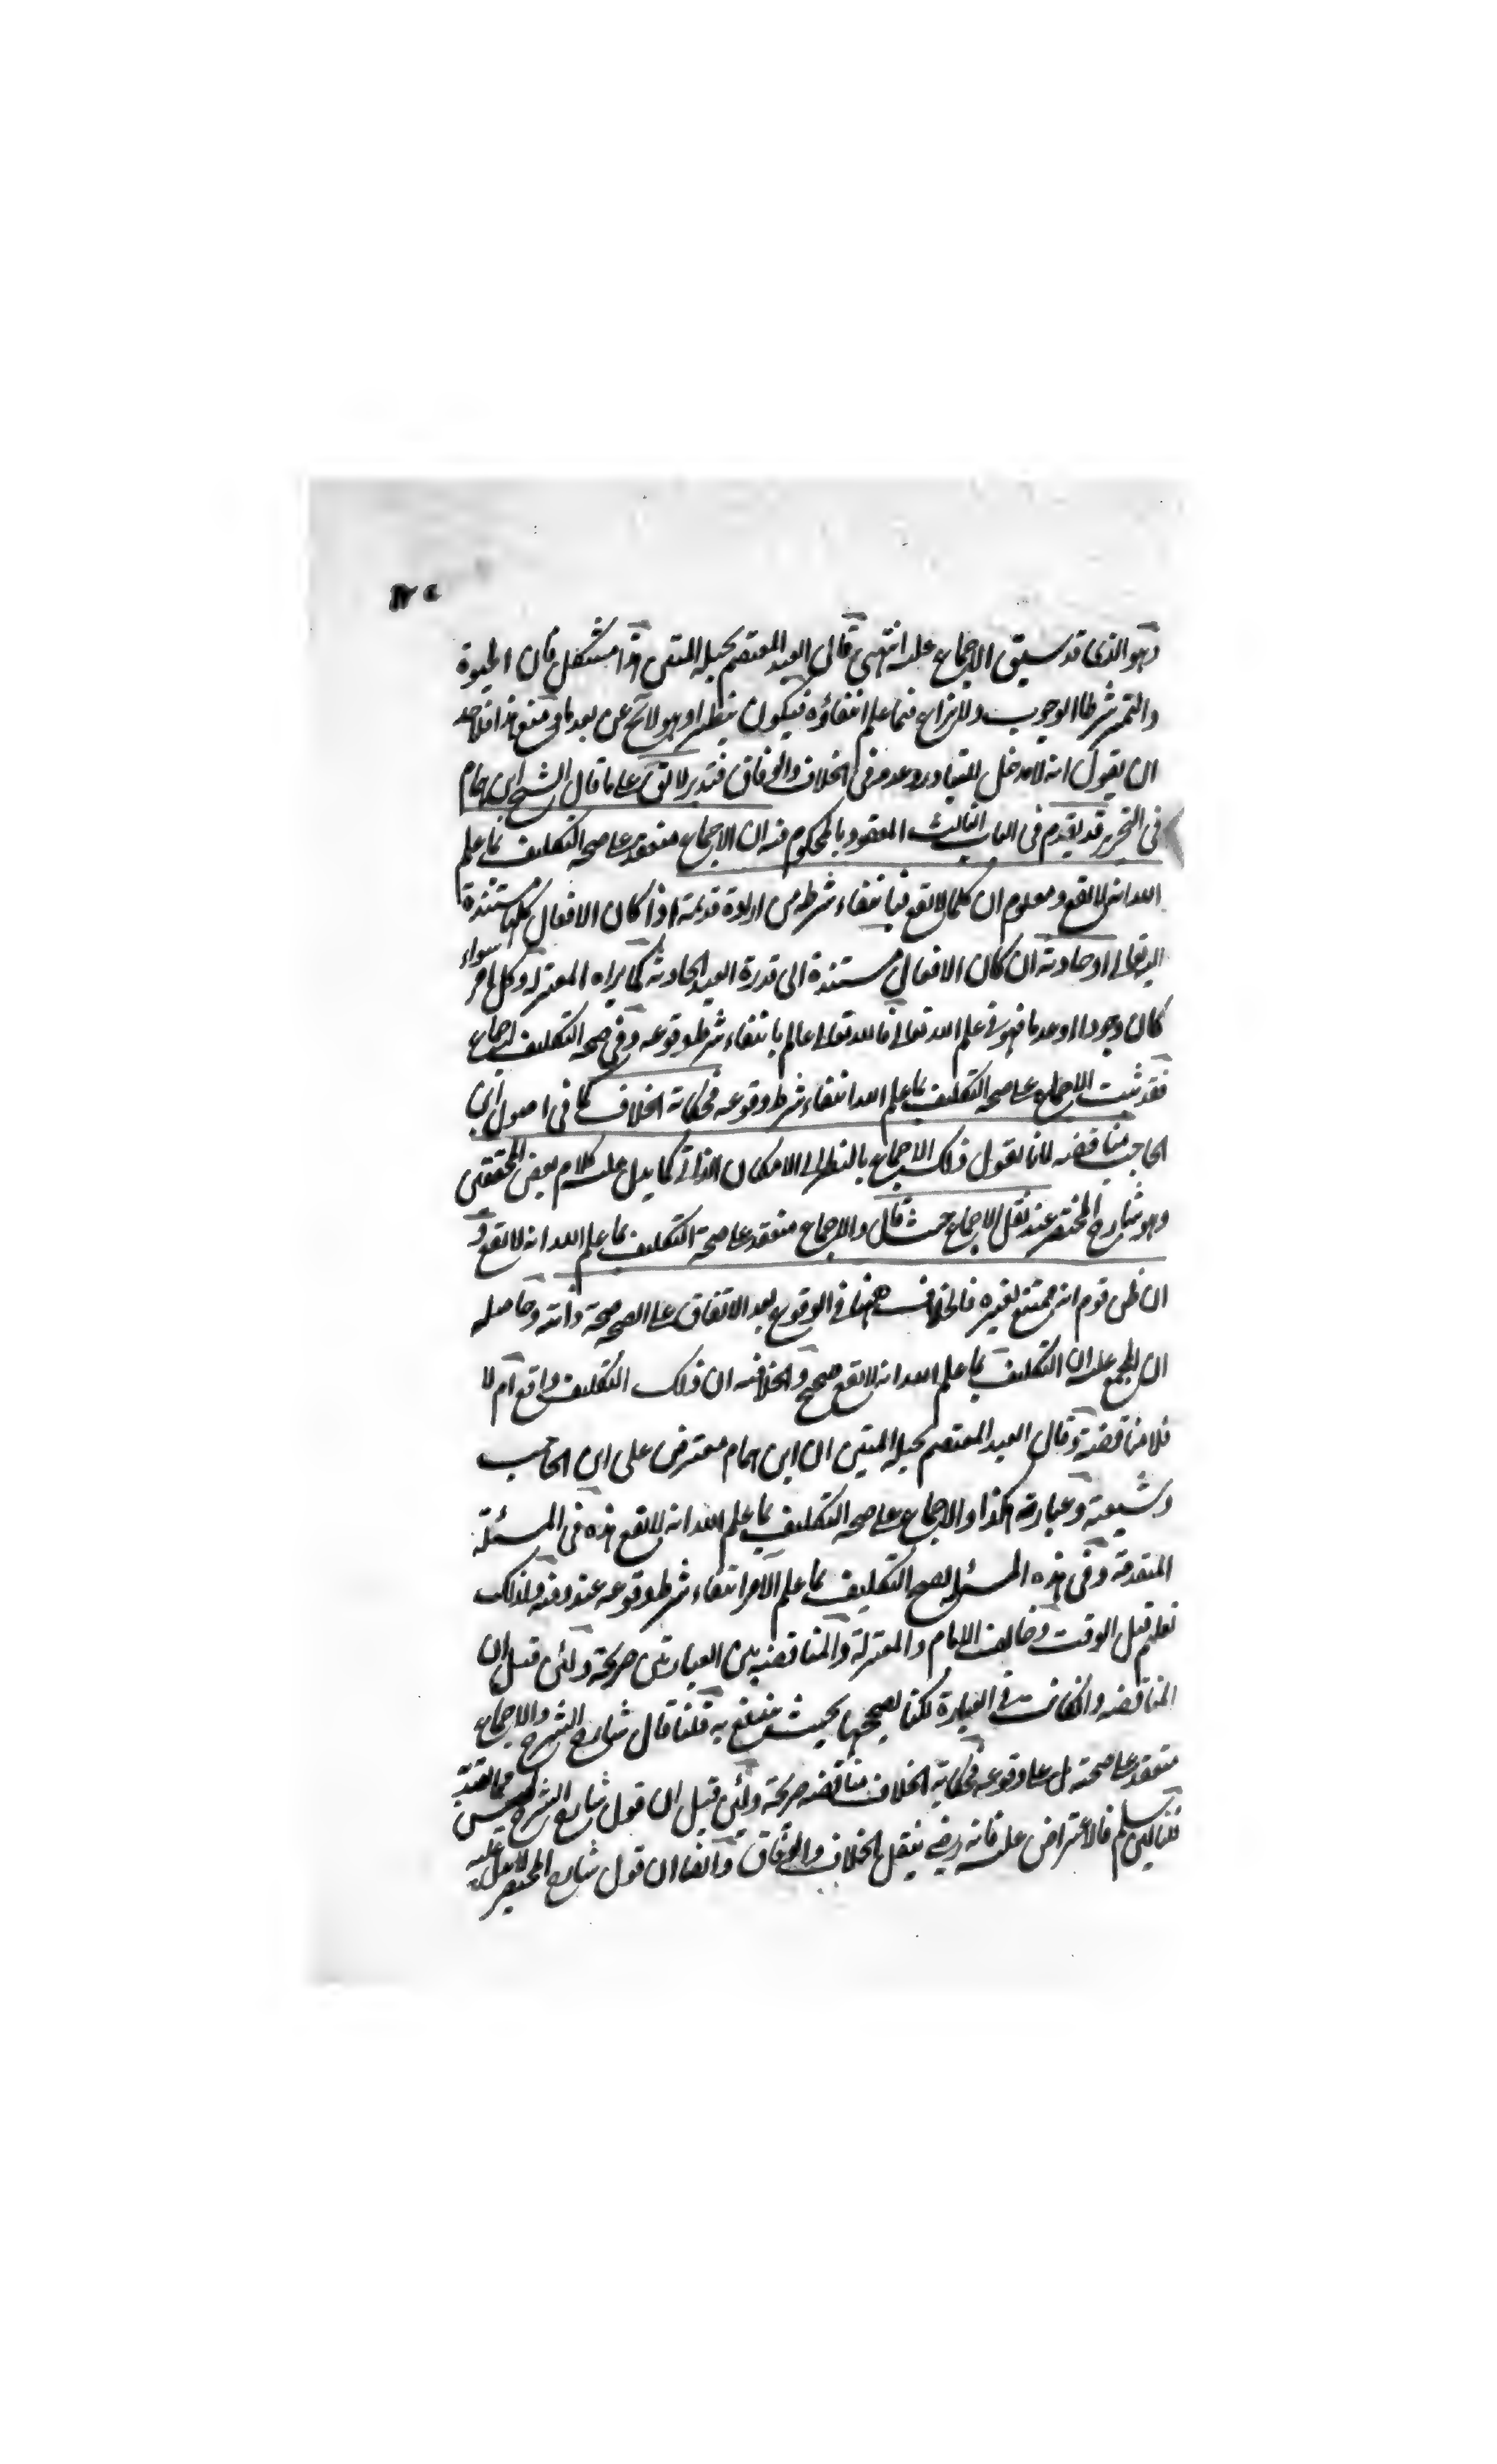 وهو الذى قد سبق الاجماع عليه انتهى قال العبد المعتصم بحبله المتين هذا مشكل فان الحيوة
والتمييز شرطا الوجوب ولا نزاع فيما علم انتفاؤه فيكون نظيرا وهو لائح عن بعد ما فى منع هذا فلاحد
ان يقول انه لا مدخل للتبادر وعدمه فى الخلاف والوفاق فتدبر لا يق على ما قال الشيخ ابن همام
فى التحرير قد يقدم فى الباب الثالث المعقود بالمحكوم فيه ان الاجماع منعقد على صحة التكليف بما علم
الله انه لا يقع ومعلوم ان كلما لا يقع فبانتفاء شرطه من ارادة قديمة اذا كان الافعال كلها مستندة
اليه تعالى او حادثة ان كان الافعال مستندة الى قدرة العبد الحادثة كما يراه المعتزلة وكل امر سواء
كان وجودا او عدما فهو فى علم الله تعالى فالله تعالى عالم بانتفاء شرط وقوعه وفى صحة التكليف اجماع
فقد ثبت الاجماع على صحة التكليف بما علم الله انتفاء شرط وقوعه فحكاية الخلاف كما فى اصول ابن
الحاجب مناقضة لانا نقول ذلك الاجماع بالنظر الى الامكان الذاتى كما يدل عليه كلام بعض المحققين
وهو شارح المختصر عند نقل الاجماع حيث قال والاجماع منعقد على صحة التكليف بما علم الله انه لا يقع و
ان ظن قوم انه ممتنع لغيره فالخلاف ههنا فى الوقوع بعد الاتفاق على الصحة صحة ذاتية وحاصله
ان المجمع عليه ان التكليف بما علم الله انه لا يقع صحيح والخلاف فيه ان ذلك التكليف واقع ام لا
فلا مناقضة وقال العبد المعتصم بحبله المتين ان ابن همام معترض على ابن الحاجب
وشيعته وعبارته هكذا والاجماع على صحة التكليف بما علم الله انه لا يقع هذه فى المسئلة
المتقدمة وفى هذه المسئلة يصح التكليف بما علم الآمر انتفاء شرط وقوعه عند وقته ولذلك
نعلم قبل الوقت وخالف الامام والمعتزلة والمناقضة بين العبارتين صريحة ولئن قيل ان
المناقضة وان كانت فى العبارة لكنا نصححها بحيث يندفع به قلنا قال شارح الشرح والاجماع
منعقد على صحته بل على وقوعه فحكاية الخلاف مناقضة صريحة ولئن قيل ان قول شارح الشرح ليس مما يعتد
قلنا لئن سلم فالاعتراض عليه فانه رضى بنقل الخلاف والوفاق وايضا ان قول شارح المختصر لا يدل عليه